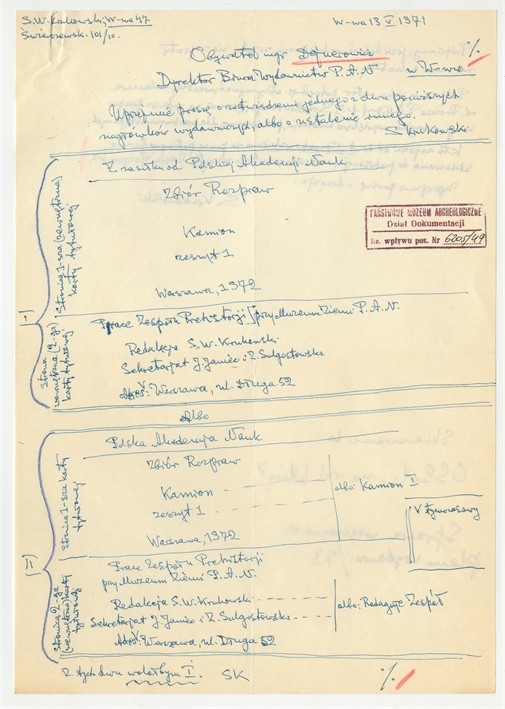 S.W. Krukowski, W-wa 47
Świerczewsk. 101/10.
W-wa 13 V 1971
Obywatel mgr
Dyrektor Biura Wydawnictw P.A.N. w W-wie
Uprzejmie proszę o zatwierdzenie jednego z dwu poniższych
nagłówków wydawniczych, albo o ustalenie innego.
S Krukowski
Z zasiłku od Polskiej Akademji Nauk
Zbiór Rozpraw
Kamion
zeszyt 1
Warszawa, 1972
Stronica 1-sza (zewnętrzna)
karty tytułowej
PAŃSTWOWE MUZEUM ARCHEOLOGICZNE
Dział Dokumentacji
Nr. wpływu poz. Nr 6205/49
I
Prace Zespołu Prehistorji przy Muzeum Ziemi P.A.N.
Redakcja S.W. Krukowski
Sekretarjat J. Janiec i Z. Sulgostowska
Adres: Warszawa, ul. Długa 52
Strona
wewnętrzna (2-ga)
karty tytułowej
albo
Polska Akademja Nauk
Zbiór Rozpraw
Kamion
zeszyt 1
Warszawa, 1972
albo: Kamion I
V tymczasowy
Stronica 1-sza karty
tytułowej
II
Prace Zespołu Prehistorji
przy Muzeum Ziemi P.A.N.
Redakcja S.W. Krukowski
Sekretarjat J. Janiec i Z. Sulgostowska
albo: Redaguje Zespół
Adres: Warszawa, ul. Długa 52
Stronica 2-ga
(wewnętrzna) karty
tytułowej
Z tych dwu wolałbym I. SK